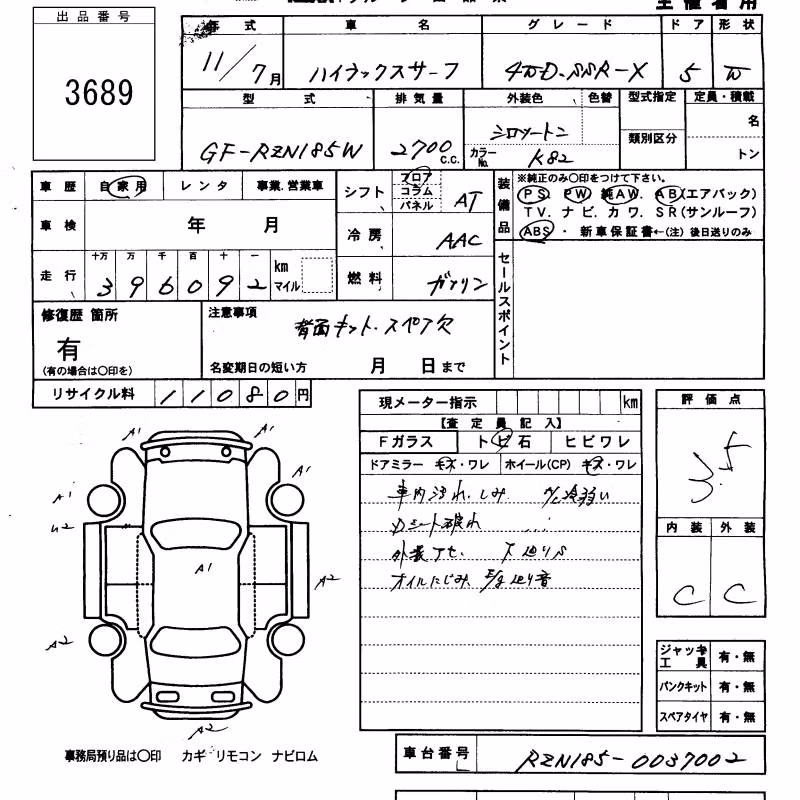 出品番号
3689
年式 車名 グレード ドア 形状
11/7月 ハイラックスサーフ 4WD.SSR-X 5 W
型式 排気量 外装色 色替 型式指定 定員・積載
GF-RZN185W 2700c.c. シロツートン 類別区分 名
カラーNo. K82 トン
車歴 自家用 レンタ 事業.営業車
車検 年 月
走行 十万 万 千 百 十 一 km マイル
396092
シフト フロア コラム パネル AT
冷房 AAC
燃料 ガソリン
装備品 ※純正のみ〇印をつけて下さい。
PS. PW. 純AW. AB(エアバック)
TV. ナビ. カワ. SR(サンルーフ)
ABS・ 新車保証書←(注) 後日送りのみ
セールスポイント
修復歴 箇所
有
(有の場合は〇印を)
注意事項
背面キット.スペア欠
名変期日の短い方 月 日まで
リサイクル料 11080円
現メーター指示 km
【査定員記入】
Fガラス トビ石 ヒビワレ
ドアミラー キズ・ワレ ホイール(CP) キズ・ワレ
車内汚れ.しみ
シート破れ
オイルにじみ
評価点
3.5
内装 外装
C C
A1
A1
A1
A1
A1
A2
A2
A2
ジャッキ工具 有・無
パンクキット 有・無
スペアタイヤ 有・無
事務局預り品は〇印 カギ リモコン ナビロム
車台番号 RZN185-0037002